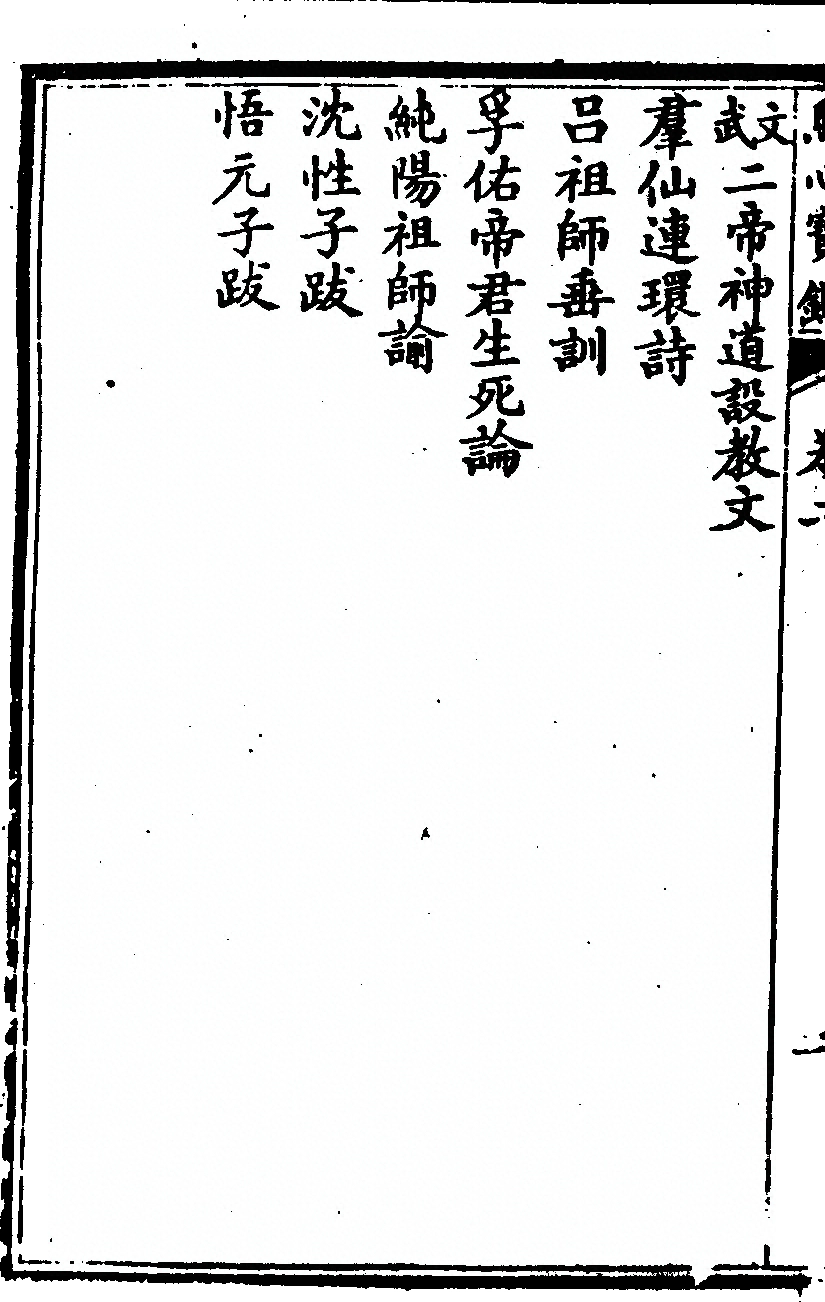 文武二帝神道設教文
羣仙連環詩
呂祖師垂訓
孚佑帝君生死論
純陽祖師諭
沈性子跋
悟元子跋